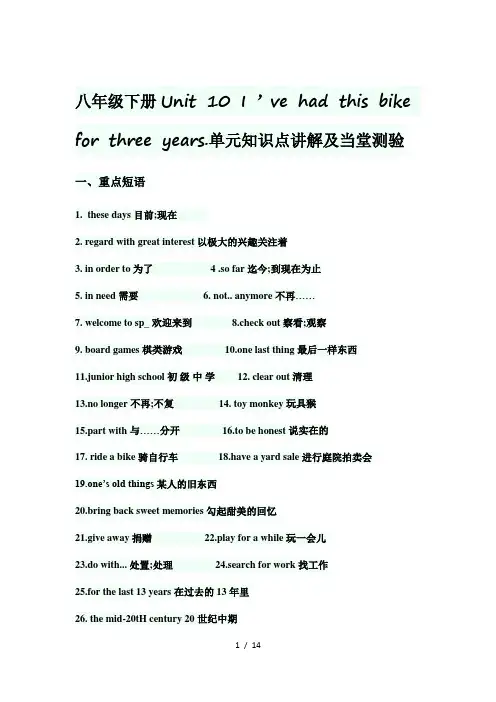 八年级下册Unit 10 I ’ ve had this bike
for three years.单元知识点讲解及当堂测验
一、重点短语
1. these days 目前;现在
2. regard with great interest 以极大的兴趣关注着
3. in order to 为了 4 .so far 迄今;到现在为止
5. in need 需要 6. not.. anymore 不再……
7. welcome to sp_ 欢迎来到 8.check out 察看;观察
9. board games 棋类游戏 10.one last thing 最后一样东西
11.junior high school 初 级 中 学 12. clear out 清理
13.no longer 不再;不复 14. toy monkey 玩具猴
15.part with 与……分开 16.to be honest 说实在的
17. ride a bike 骑自行车 18.have a yard sale 进行庭院拍卖会
19.one’s old things 某人的旧东西
20.bring back sweet memories 勾起甜美的回忆
21.give away 捐赠 22.play for a while 玩一会儿
23.do with... 处置;处理 24.search for work 找工作
25.for the last 13 years 在过去的 13 年里
26. the mid-20tH century 20 世纪中期
1 / 14